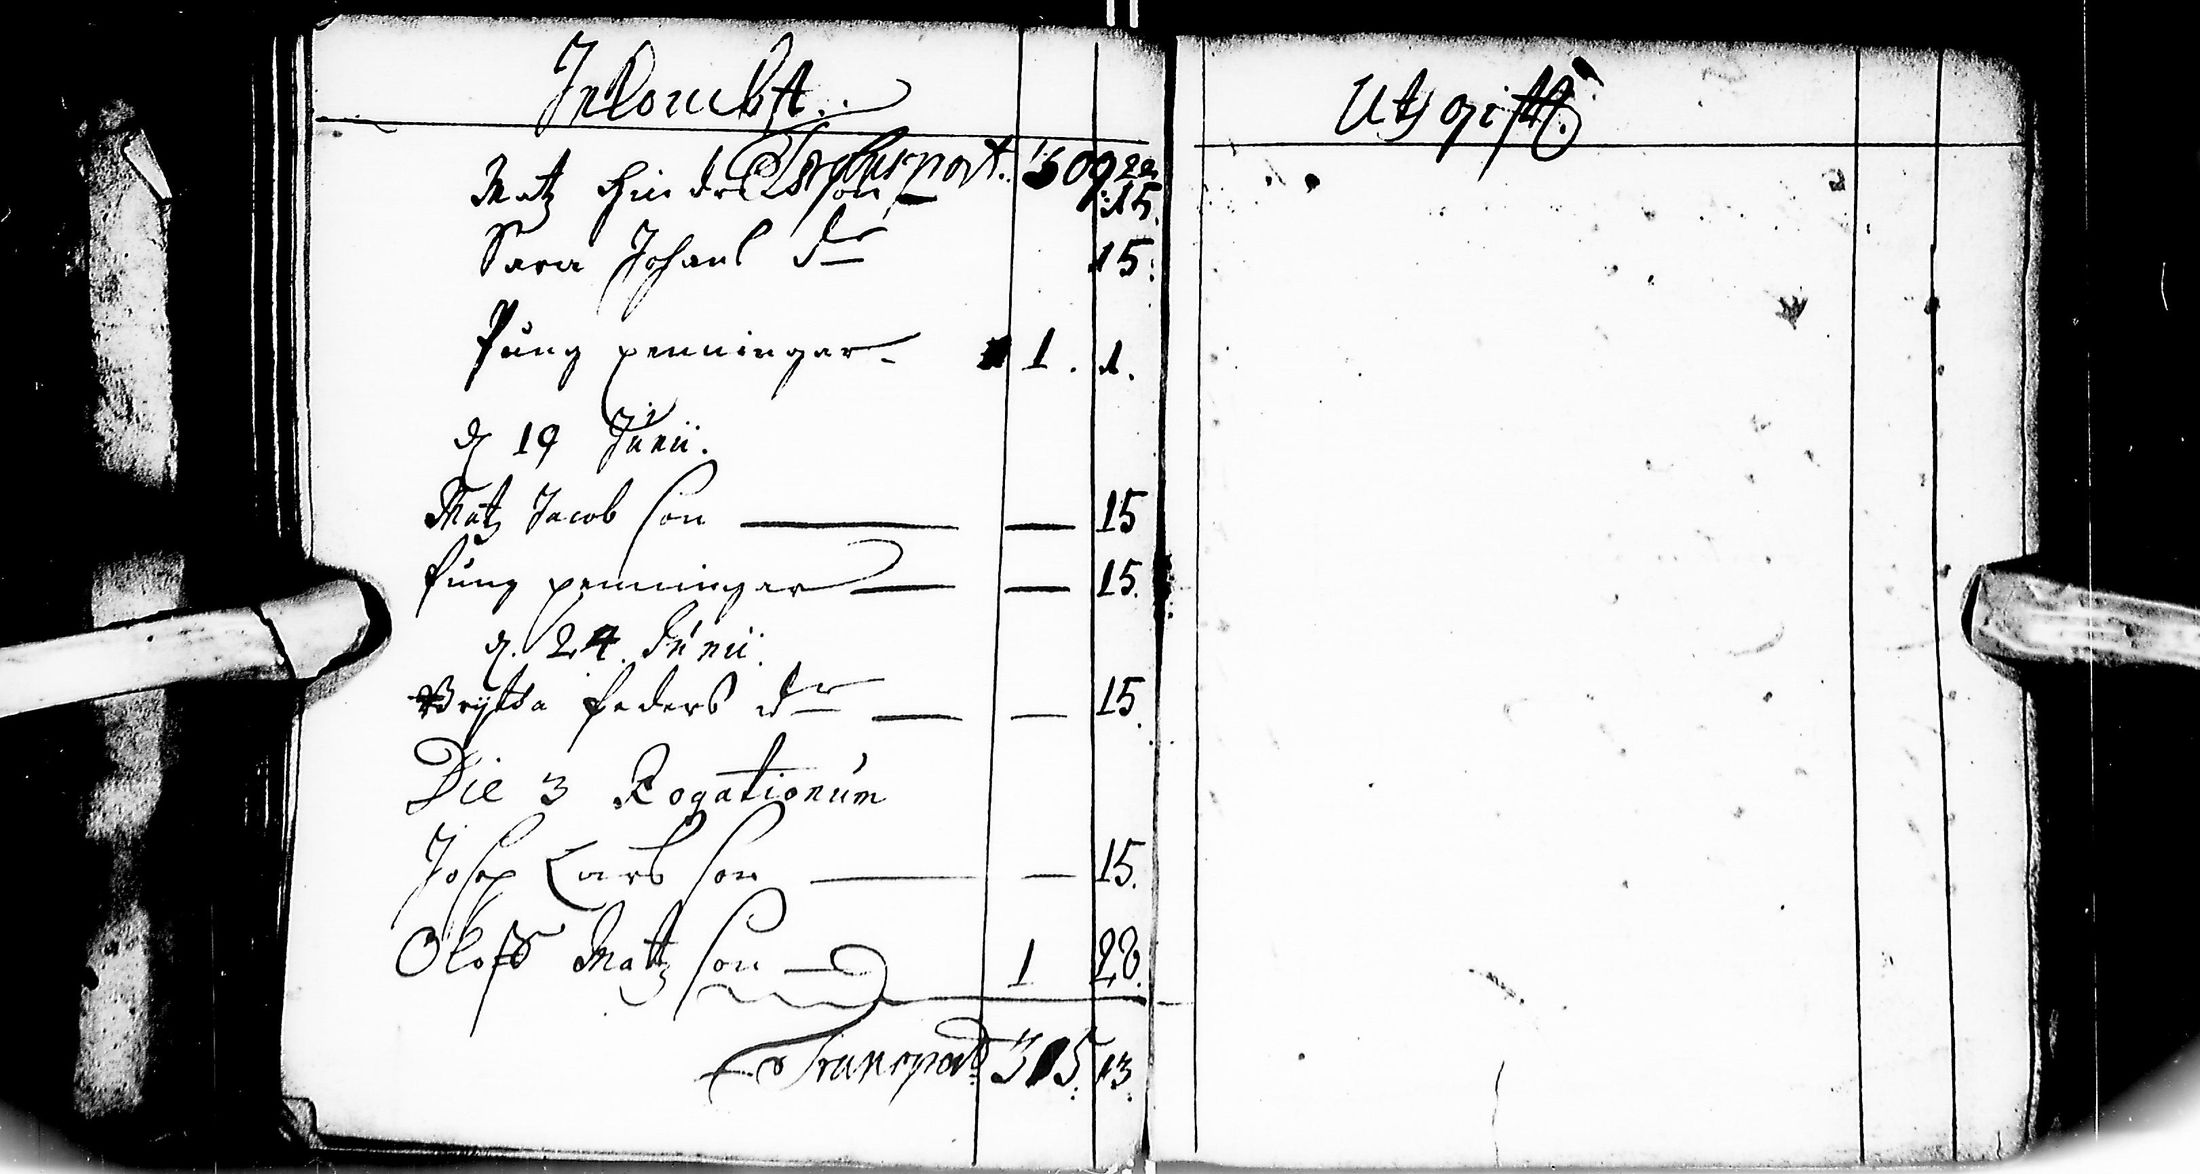 Inkombst.
Transport. 309 22
Matz Hindrichson 15.
Sara Johans dr 15.
Pung penningar 1. 1.
d 19 Junii.
Matz Jacobson — — 15
Pung penningar — — 15.
d. 24. Junii.
Brijtta Peders dr — — 15.
Die 3 Rogationum
Josep Larsson — — 15.
Oloff Mattzson — 1 28.
Transport 315. 13.
Utgifft.